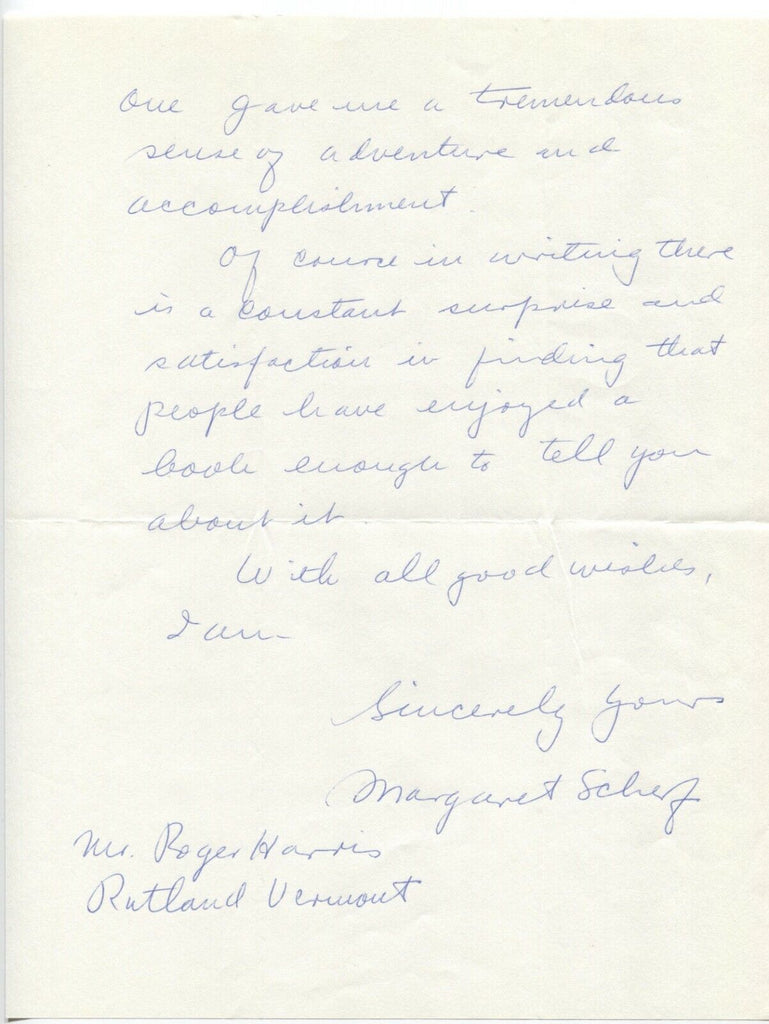 One gave me a tremendous
sense of adventure and
accomplishment.
Of course in writing there
is a constant surprise and
satisfaction in finding that
people have enjoyed a
book enough to tell you
about it.
With all good wishes,
I am—
Sincerely yours
Margaret Scherf
Mr. Roger Harris
Rutland Vermont